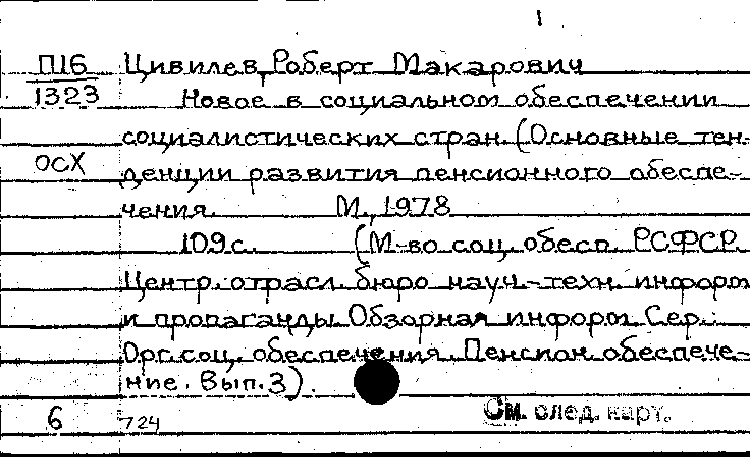 1.
П16 Цивилев, Роберт Макарович
1323 Новое в социальном обеспечении
социалистических стран. (Основные тен-
осх
денции развития пенсионного обеспе-
чения. М., 1978
109 с. (М-во соц. обесп. РСФСР.
Центр. отрасл. бюро науч.-техн. информ
и пропаганды. Обзорная информ. Сер.:
Орг. соц. обеспечения. Пенсион. обеспече-
ние. Вып. 3).
6 724 См. след. карт.